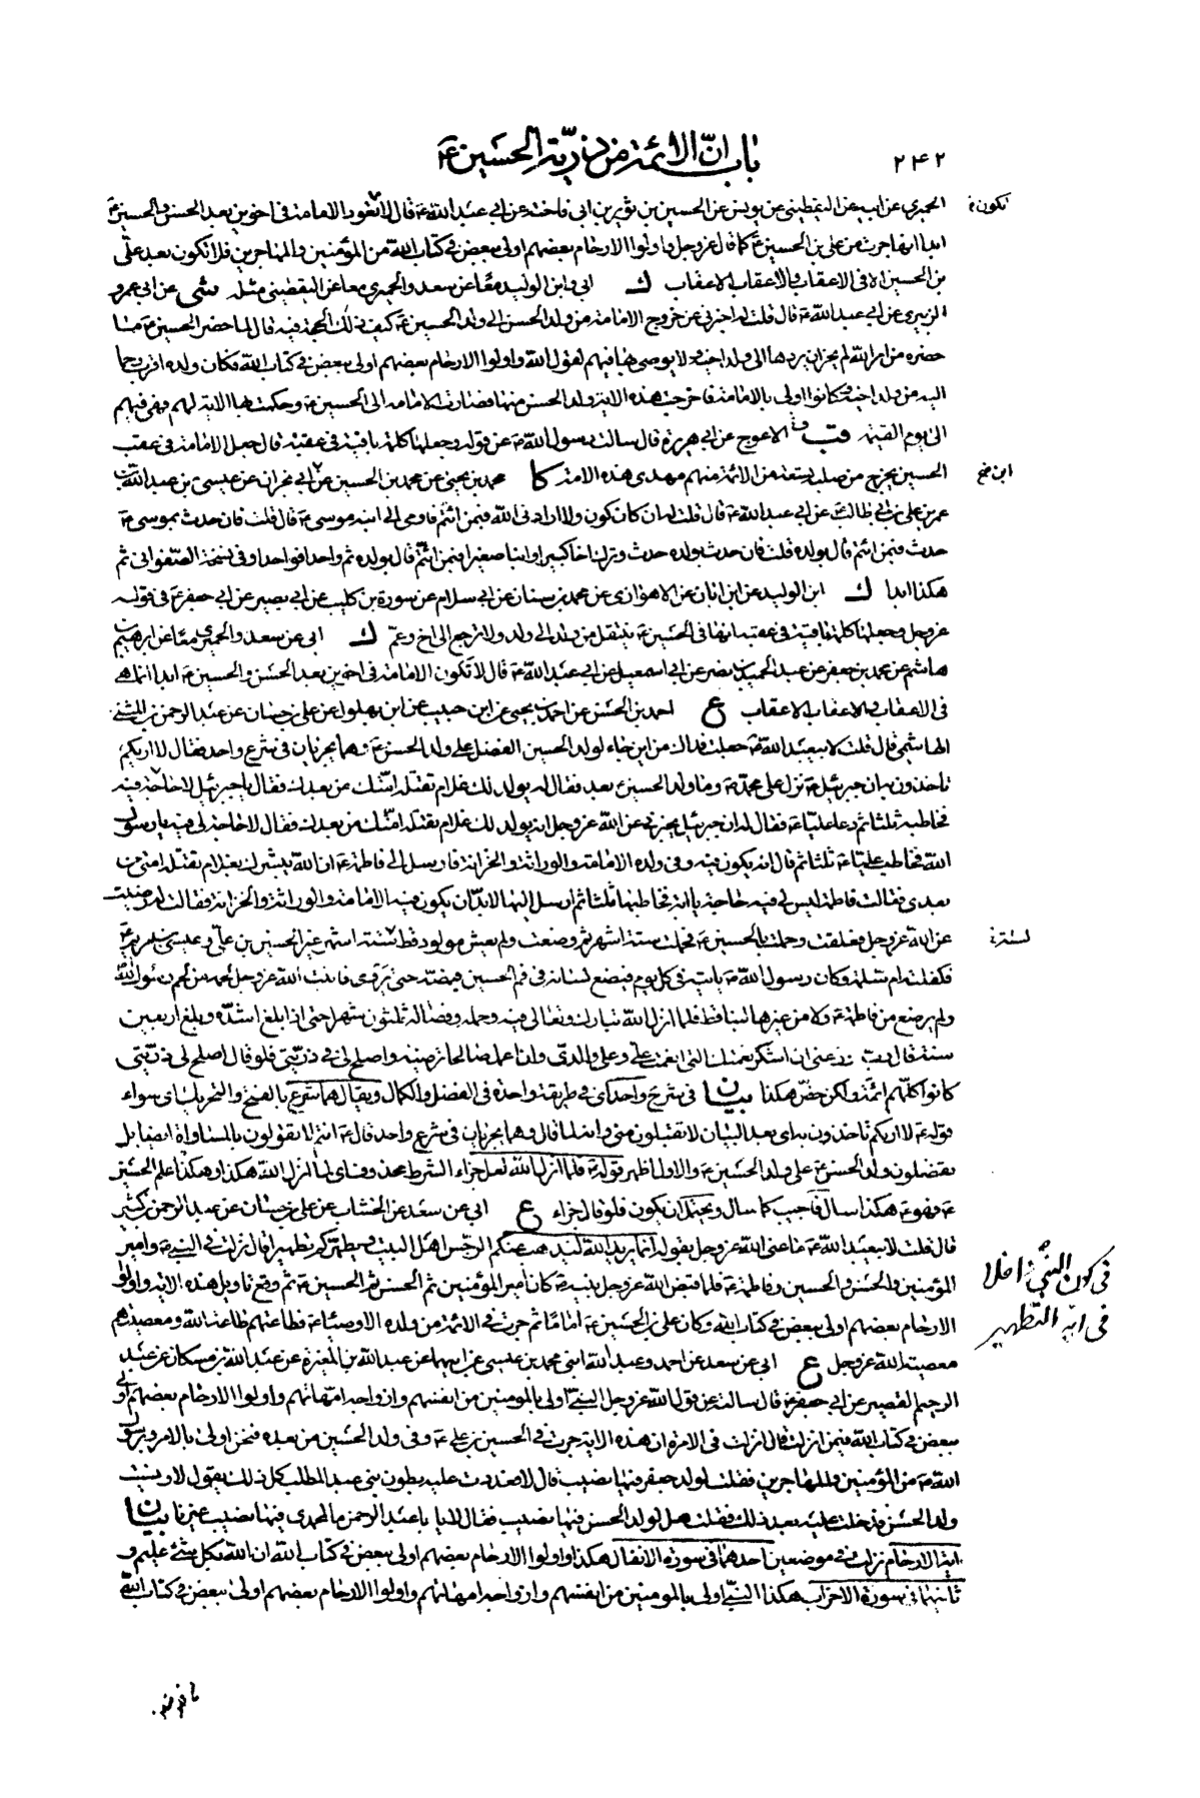 ٢٤٢
باب انّ الائمة من ذريّة الحسين ع
الحميري عن ابيه عن اليقطيني عن يونس عن الحسين بن ثوير بن ابي فاخته عن ابي عبد الله ع قال لا تعود الامامة في اخوين بعد الحسن والحسين ع
تكون
ابدا انها جرت من علي بن الحسين ع كما قال عز وجل واولوا الارحام بعضهم اولى ببعض في كتاب الله من المؤمنين والمهاجرين فلا تكون بعد علي
بن الحسين الا في الاعقاب والاعقاب الاعقاب ك ابي وابن الوليد معا عن سعد والحميري معا عن اليقطيني مثله شى عن ابي عمرو
الزبيري عن ابي عبد الله ع قال قلت له اخبرني عن خروج الامامة من ولد الحسن الى ولد الحسين ع كيف ذلك الحجة فيه قال لما حضر الحسين ع ما
حضره من امر الله لم يجز ان يردها الى ولد اخيه ولا يوصي بها فيهم لقول الله واولوا الارحام بعضهم اولى ببعض في كتاب الله فكان ولده اقرب رحما
اليه من ولد اخيه وكانوا اولى بالامامة فاخرجت هذه الاية ولد الحسن منها فصارت الامامة الى الحسين ع وحكمت بها الاية لهم فهي فيهم
الى يوم القيمة قب الاعرج عن ابي هريرة قال سالت رسول الله ص عن قوله وجعلها كلمة باقية في عقبه قال جعل الامامة في عقب
الحسين يخرج من صلبه تسعة من الائمة منهم مهدي هذه الامة كا محمد بن يحيى عن محمد بن الحسين عن ابي نجران عن عيسى بن عبد الله بن
ابن صح
عمر بن علي بن ابي طالب عن ابي عبد الله ع قال قلت له ان كان كون ولا اراه الله فبمن ائتم فاومى الى ابنه موسى ع قال قلت فان حدث بموسى ع
حدث فبمن ائتم قال بولده قلت فان حدث بولده حدث وترك اخا كبيرا وابنا صغيرا فبمن ائتم قال بولده ثم واحدا فواحدا وفي نسخة الصفواني ثم
هكذا ابدا ك ابن الوليد عن ابن ابان عن الاهوازي عن محمد بن سنان عن ابي سلام عن سورة بن كليب عن ابي بصير عن ابي جعفر ع في قوله
عز وجل وجعلها كلمة باقية في عقبه انها في الحسين ع ينتقل من ولد الى ولد ولا ترجع الى اخ وعم ك ابي عن سعد والحميري معا عن ابراهيم بن
هاشم عن محمد بن جعفر عن عبد الحميد بن نصر عن ابي اسمعيل عن ابي عبد الله ع قال لا تكون الامامة في اخوين بعد الحسن والحسين ع ابدا انما هي
في الاعقاب والاعقاب الاعقاب ع احمد بن الحسن عن احمد بن يحيى عن ابن حبيب عن ابن بهلول عن علي بن حسان عن عبد الرحمن بن المثنى
الهاشمي قال قلت لابي عبد الله ع جعلت فداك من اين جاء لولد الحسين الفضل على ولد الحسن ع وهما يجريان في شرع واحد فقال لا اريكم
تاخذون به ان جبرئيل ع نزل على محمد ص وما ولد الحسين ع بعد فقال له يولد لك غلام تقتله امتك من بعدك فقال يا جبرئيل لا حاجة لي فيه
فخاطبه ثلثا ثم دعا عليا ع فقال له ان جبرئيل يخبرني عن الله عز وجل انه يولد لك غلام تقتله امتك من بعدك فقال لا حاجة لي فيه يا رسول
الله فخاطب عليا ع ثلثا ثم قال انه يكون فيه وفي ولده الامامة والوراثة والخزانة فارسل الى فاطمة ع ان الله يبشرك بغلام تقتله امتي من
بعدي فقالت فاطمة ليس لي فيه حاجة يا ابة فخاطبها ثلثا ثم ارسل اليها لا بد ان يكون فيه الامامة والوراثة والخزانة فقالت له رضيت
عن الله عز وجل فعلقت وحملت بالحسين ع فحملت ستة اشهر ثم وضعت ولم يعش مولود قط لستة اشهر غير الحسين بن علي وعيسى بن مريم ع
لستة
فكفلته ام سلمة وكان رسول الله ص ياتيه في كل يوم فيضع لسانه في فم الحسين فيمصه حتى يروى فانبت الله عز وجل لحمه من لحم رسول الله
ولم يرضع من فاطمة ع ولا من غيرها لبنا قط فلما انزل الله تبارك وتعالى فيه وحمله وفصاله ثلثون شهرا حتى اذا بلغ اشده وبلغ اربعين
سنة قال رب اوزعني ان اشكر نعمتك التي انعمت علي وعلى والدي وان اعمل صالحا ترضيه واصلح لي في ذريتي فلو قال اصلح لي ذريتي
كانوا كلهم ائمة ولكن خص هكذا بيان في شرع واحد اي في طريقة واحدة في الفضل والكمال ويقال هما شرع بالفتح والتحريك اي سواء
قوله ع لا اريكم تاخذون به اي بعد البيان لا تقبلون مني
تفضلون ولد الحسن ع على ولد الحسين ع والاول اظهر قوله ع فلما انزل الله
ع فهو ع هكذا سال فاجيب كما سال ويحتمل ان يكون فلو قال جزاء ع ابي عن سعد عن الخشاب عن علي بن حسان عن عبد الرحمن بن كثير
قال قلت لابي عبد الله ع ما عنى الله عز وجل بقوله انما يريد الله ليذهب عنكم الرجس اهل البيت ويطهركم تطهيرا قال نزلت في النبي ص وامير
المؤمنين والحسن والحسين وفاطمة ع فلما قبض الله عز وجل نبيه ص كان امير المؤمنين ثم الحسن ثم الحسين ع ثم وقع تاويل هذه الاية واولوا
في كون النبي داخلا
في اية التطهير
الارحام بعضهم اولى ببعض في كتاب الله وكان علي بن الحسين ع اماما ثم جرت في الائمة من ولده الاوصياء ع فطاعتهم طاعة الله ومعصيتهم
معصية الله عز وجل ع ابي عن سعد عن احمد وعبد الله ابني محمد بن عيسى عن ابيهما عن عبد الله بن المغيرة عن عبد الله بن مسكان عن عبد
الرحيم القصير عن ابي جعفر ع قال سالته عن قول الله عز وجل النبي اولى بالمومنين من انفسهم وازواجه امهاتهم واولوا الارحام بعضهم اولى
ببعض في كتاب الله فيمن انزلت قال انزلت في الامرة ان هذه الاية جرت في الحسين بن علي ع وفي ولد الحسين من بعده فنحن اولى بالامر وبرسول
الله ص من المؤمنين والمهاجرين فقلت لولد جعفر فيها نصيب قال لا فعددت عليه بطون بني عبد المطلب كل ذلك يقول لا ونسيت
ولد الحسن فدخلت عليه بعد ذلك فقلت هل لولد الحسن فيها نصيب فقال لا يا با عبد الرحمن ما لمحمدي فيها نصيب غيرنا بيان
اية الارحام نزلت في موضعين احدهما في سورة الانفال هكذا واولوا الارحام بعضهم اولى ببعض في كتاب الله ان الله بكل شئ عليم و
ثانيهما في سورة الاحزاب هكذا النبي اولى بالمومنين من انفسهم وازواجه امهاتهم واولوا الارحام بعضهم اولى ببعض في كتاب الله